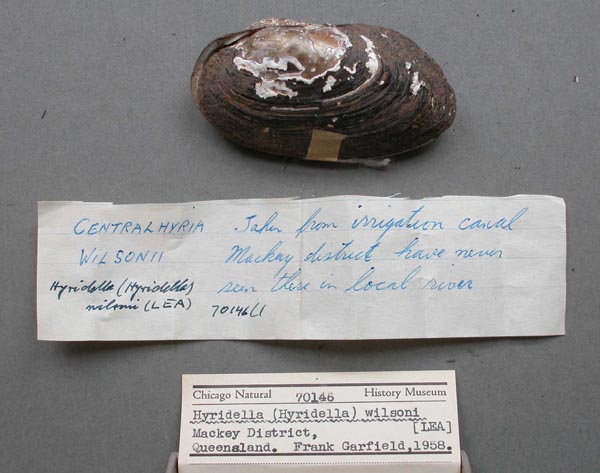 CENTRALHYRIA Taken from irrigation canal
WILSONII Mackay district have never
Hyridella (Hyridella) seen these in local river
wilsonii (LEA) 70146/1
Chicago Natural 70146 History Museum
Hyridella (Hyridella) wilsoni
Mackey District, [LEA]
Queensland. Frank Garfield, 1958.